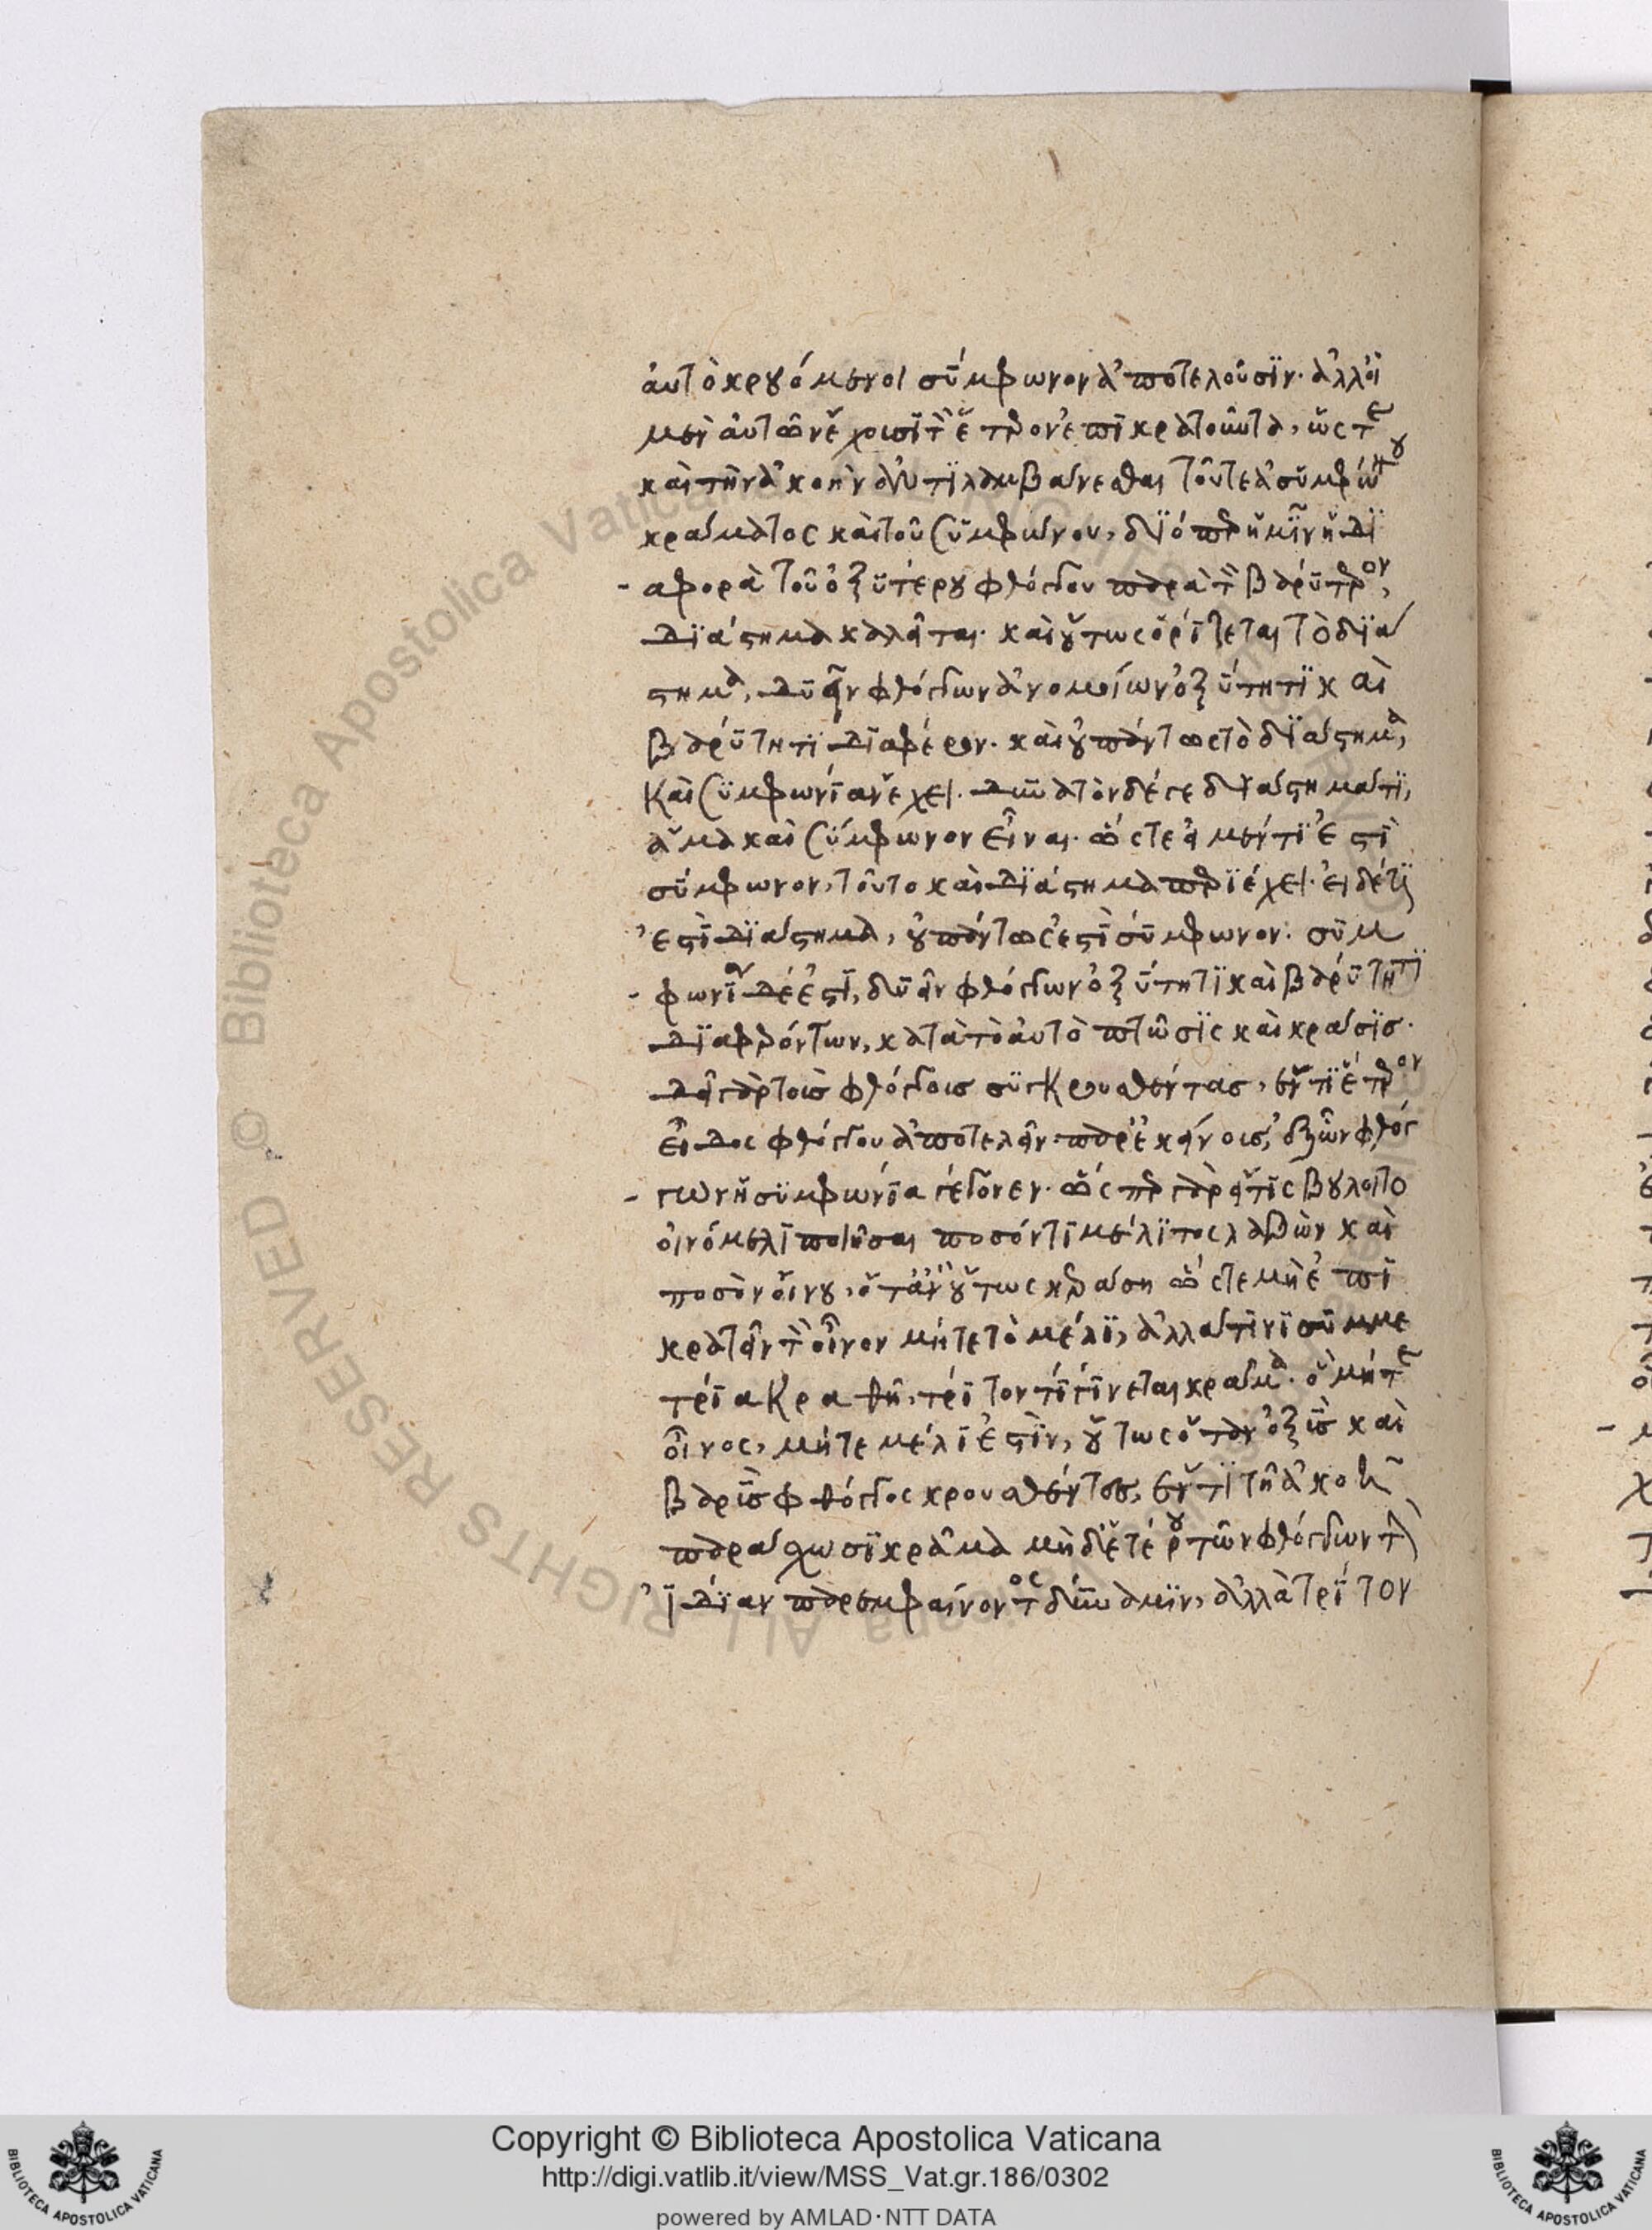 αὐτὸ κρουόμενοι σύμφωνον ἀποτελοῦσιν· ἀλλ' οἱ
μὲν αὐτῶν ἔχουσι τὸν ἕτερον ἐπικρατοῦντα, ὥστε
καὶ τὴν ἀκοὴν ἀντιλαμβάνεσθαι τοῦ τε ἀσυμφώνου
κράματος καὶ τοῦ συμφώνου, διόπερ ἡμῖν ἡ δι
αφορὰ τοῦ ὀξυτέρου φθόγγου παρὰ τὸν βαρύτερον,
διάστημα καλεῖται· καὶ οὕτως ὁρίζεται τὸ διά
στημα, δυεῖν φθόγγων ἀνομοίων ὀξύτητι καὶ
βαρύτητι διαφέρον. καὶ οὐ πάντως τὸ διάστημα,
καὶ συμφωνίαν ἔχει. δυνατὸν δέ γε διαστήματι,
ἅμα καὶ σύμφωνον εἶναι· ὥστε εἰ μέν τί ἐστι
σύμφωνον, τοῦτο καὶ διάστημα περιέχει· εἰ δέ τι
ἐστὶ διάστημα, οὐ πάντως ἐστὶ σύμφωνον. συμ
φωνία δέ ἐστι, δυεῖν φθόγγων ὀξύτητι καὶ βαρύτητι
διαφερόντων, κατὰ τὸ αὐτὸ πτῶσις καὶ κρᾶσις.
δεῖ γὰρ τοὺς φθόγγους συγκρουσθέντας, ἕν τι ἕτερον
εἶδος φθόγγου ἀποτελεῖν παρ' ἐκείνους, ἐξ ὧν φθόγ
γων ἡ συμφωνία γέγονεν. ὥσπερ γὰρ εἴ τις βούλοιτο
οἰνόμελι ποιῆσαι ποσόν τι μέλιτος λαβὼν καὶ
ποσὸν οἴνου, ὅταν οὕτως κεράσῃ ὥστε μὴ ἐπι
κρατεῖν τὸν οἶνον μήτε τὸ μέλι, ἀλλά τινι συμμε
τρίᾳ κραθῇ, τρίτον τι γίνεται κρᾶμα· ὃ μήτε
οἶνος, μήτε μέλι ἐστίν, οὕτως ὅταν ὀξὺς καὶ
βαρὺς φθόγγος κρουσθέντες, ἕν τι τῇ ἀκοῇ
παράσχωσι κρᾶμα μηδετέρου τῶν φθόγγων τὴν
ἰδίαν παρεμφαίνοντος δύναμιν, ἀλλὰ τρίτον
Copyright © Biblioteca Apostolica Vaticana
http://digi.vatlib.it/view/MSS_Vat.gr.186/0302
powered by AMLAD·NTT DATA
BIBLIOTECA APOSTOLICA VATICANA
BIBLIOTECA APOSTOLICA VATICANA
© Biblioteca Apostolica Vaticana ALL RIGHTS RESERVED